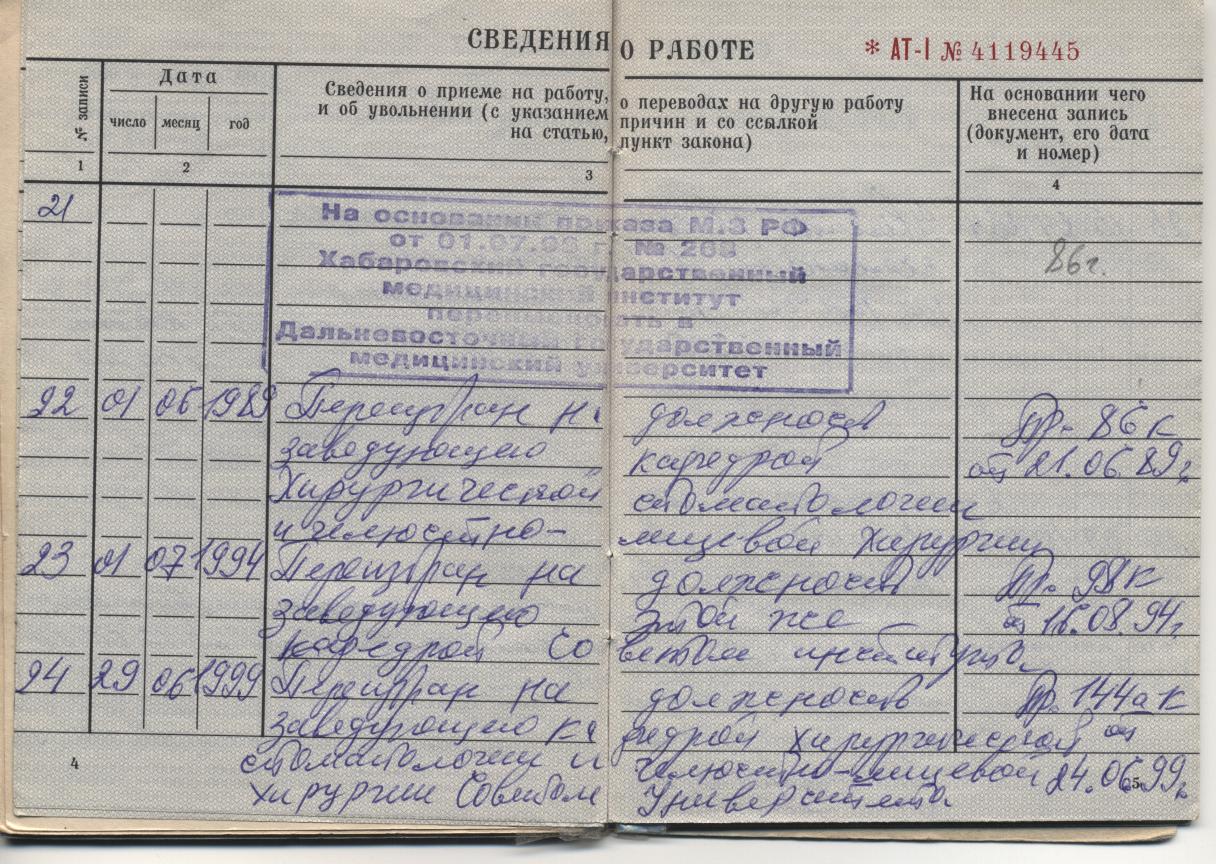 СВЕДЕНИЯ О РАБОТЕ * АТ-I № 4119445
№ записи
Дата
число месяц год
Сведения о приеме на работу, о переводах на другую работу
и об увольнении (с указанием причин и со ссылкой
на статью, пункт закона)
На основании чего
внесена запись
(документ, его дата
и номер)
1 2 3 4
21
На основании приказа М.З РФ
от 01.07.95 г. № 268
Хабаровский государственный
медицинский институт
переименовать в
Дальневосточный государственный
медицинский университет
86 г.
22 01 06 1989 Переизбран на должность Пр. 86 к
заведующего кафедрой от 21.06.89 г.
Хирургической стоматологии
и челюстно- лицевой хирургии
23 01 07 1994 Переизбран на должность Пр. 98 к
заведующего этой же от 16.08.94 г.
кафедрой Советом института
24 29 06 1999 Переизбран на должность Пр. 144а к
заведующего кафедрой хирургической от
стоматологии и челюстно-лицевой 24.06.99 г.
хирургии Советом Университета
4 5